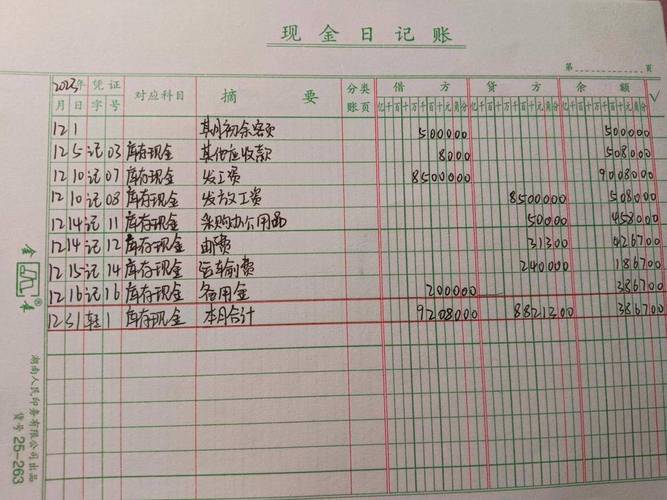 现金日记账
第 页
2023年 凭证 对应科目 摘要 分类账页 借方 贷方 余额 √
月 日 字 号 亿千百十万千百十元角分 亿千百十万千百十元角分 亿千百十万千百十元角分
12 1 期初余额 500000 500000
12 5 记 03 库存现金 其他应收款 8000 508000
12 10 记 07 库存现金 发工资 8500000 9008000
12 10 记 08 库存现金 发放工资 8500000 508000
12 14 记 11 库存现金 采购办公用品 50000 458000
12 14 记 12 库存现金 邮费 31300 426700
12 15 记 14 库存现金 运输费 240000 186700
12 16 记 16 库存现金 备用金 200000 386700
12 31 转 1 库存现金 本月合计 9208000 8821300 386700
金
®
湖南人民印务有限公司出品
货号 25-263